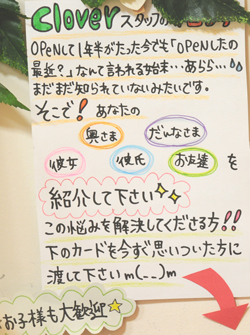 Clover スタッフの
OPENして1年半がたった今でも「OPENしたの
最近?」なんて言われる始末…あらら…
まだまだ知られていないみたいです。
そこで!あなたの
奥さま だんなさま
彼女 彼氏 お友達 を
紹介して下さい
この悩みを解決してくださる方!!
下のカードを今すぐ思いついた方に
渡して下さいm(__)m
お子様も大歓迎☆